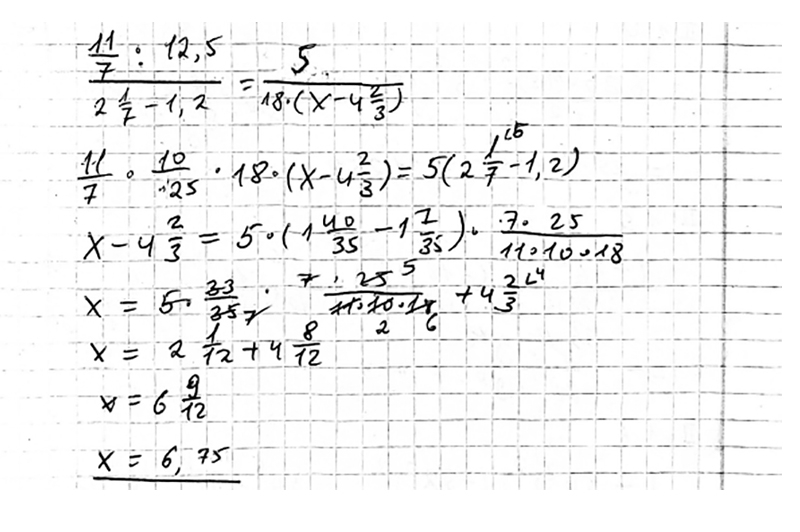 11/7 : 12,5 / (2 1/7 - 1,2) = 5 / (18·(x - 4 2/3))
11/7 · 10/125 · 18·(x - 4 2/3) = 5(2 1/7 - 1,2)
x - 4 2/3 = 5·(1 40/35 - 1 7/35) · 7·25 / 11·10·18
x = 5· 33/35 7 · 7·25 5 / 11·10·18 2 6 + 4 2/3 ∠4
x = 2 1/12 + 4 8/12
x = 6 9/12
x = 6,75